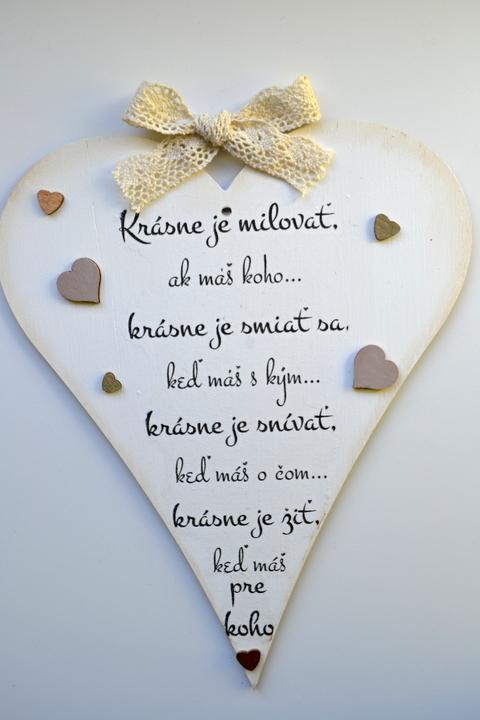 Krásne je milovať,
ak máš koho...
krásne je smiať sa,
keď máš s kým...
krásne je snívať,
keď máš o čom...
krásne je žiť,
keď máš
pre
koho